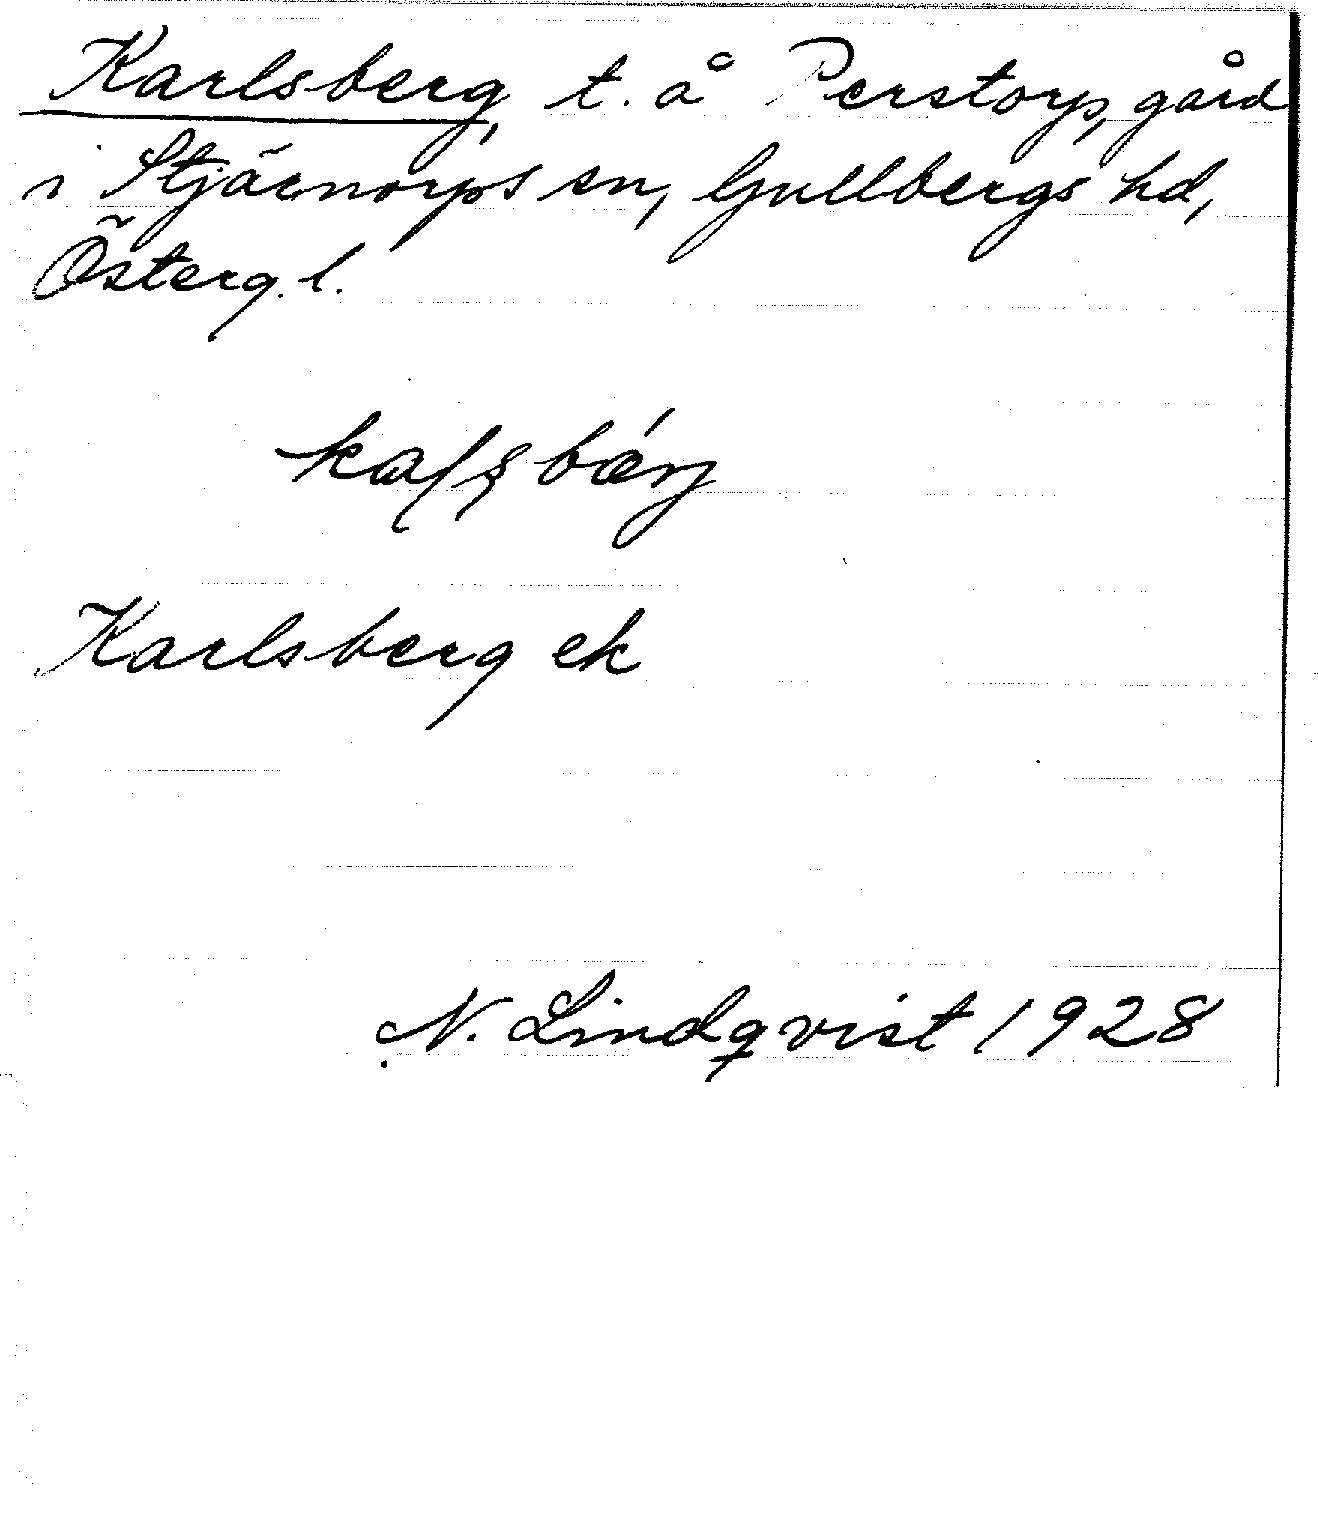 Karlsberg, t. å Perstorp, gård
i Stjärnorps sn, Gullbergs hd,
Österg. l.
Karlsberg ek
N. Lindqvist 1928